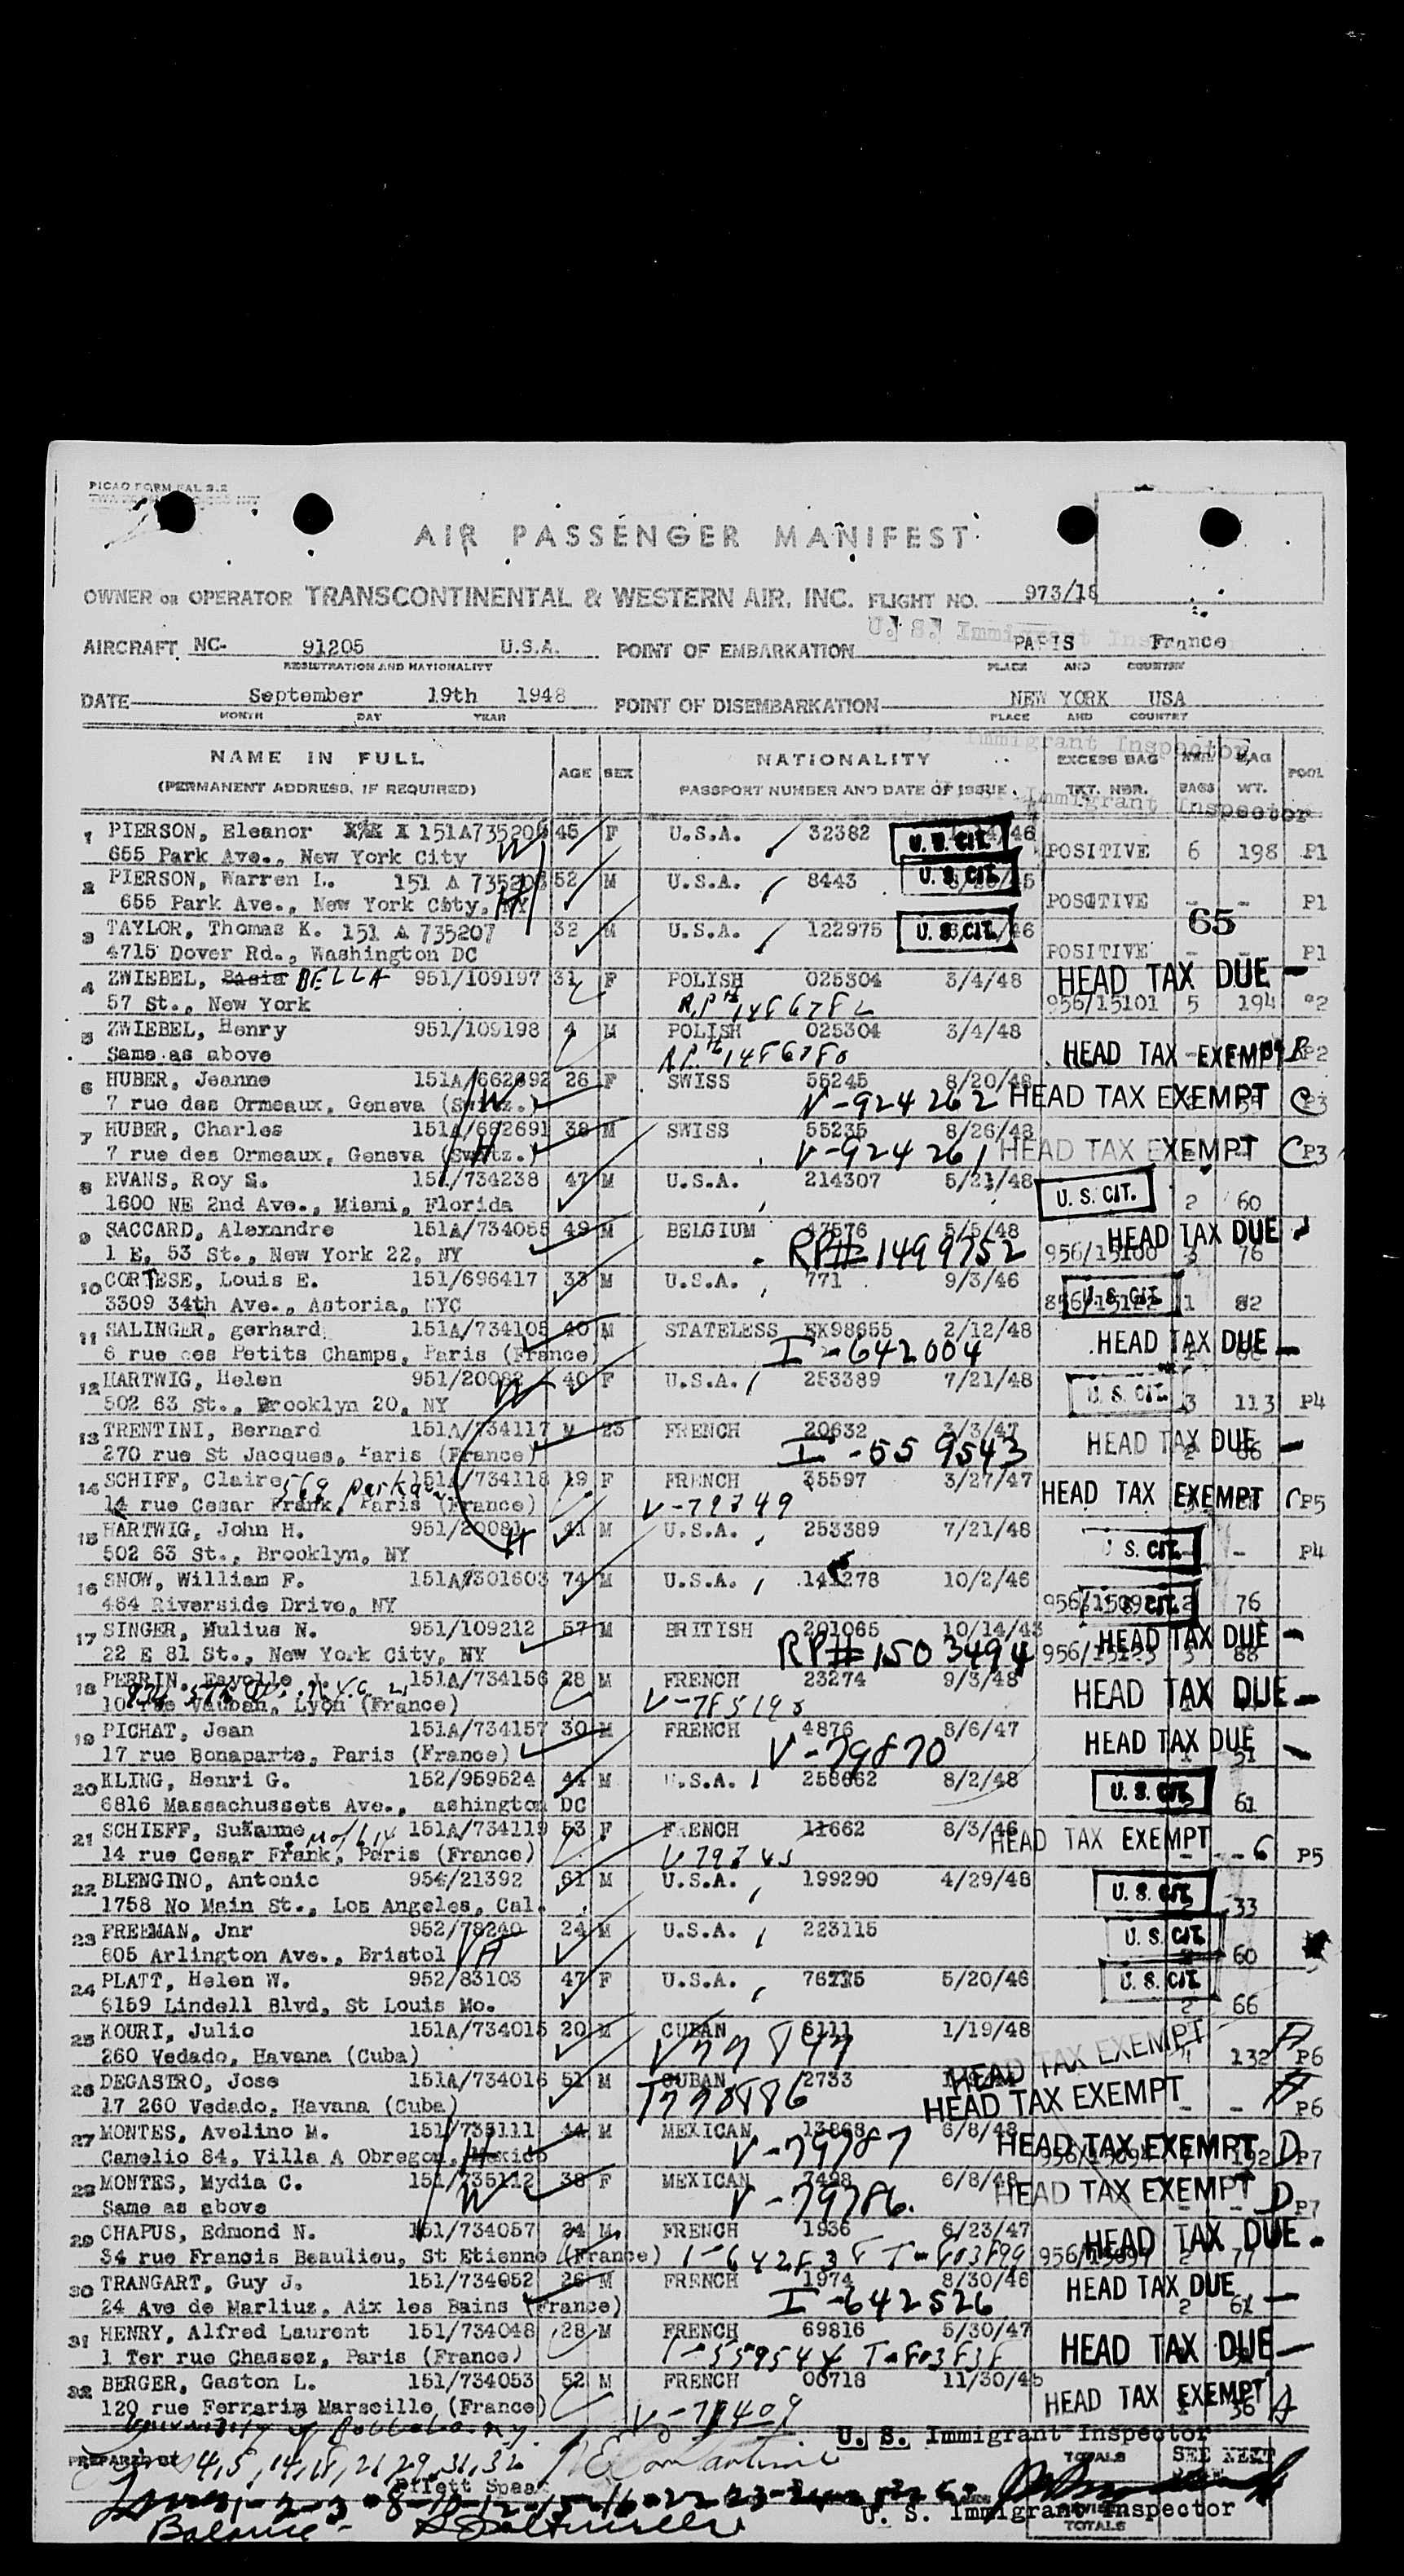 PICAO FORM FAL 3.2
AIR PASSENGER MANIFEST
OWNER OR OPERATOR TRANSCONTINENTAL & WESTERN AIR, INC. FLIGHT NO. 973/18
U. S. Immigrant Inspector
AIRCRAFT NC- 91205 U.S.A. POINT OF EMBARKATION PARIS France
REGISTRATION AND NATIONALITY PLACE AND COUNTRY
DATE September 19th 1948 POINT OF DISEMBARKATION NEW YORK USA
MONTH DAY YEAR PLACE AND COUNTRY
U. S. Immigrant Inspector
NAME IN FULL AGE SEX NATIONALITY EXCESS BAG BAG POOL
(PERMANENT ADDRESS, IF REQUIRED) PASSPORT NUMBER AND DATE OF ISSUE. TKT. NBR. BAGS WT.
Immigrant Inspector
1 PIERSON, Eleanor 151A735205 45 F U.S.A. 32382 U. S. CIT. /46
655 Park Ave., New York City W POSITIVE 6 198 P1
2 PIERSON, Warren L. 151 A 735206 52 M U.S.A. 8443 U. S. CIT.
655 Park Ave., New York Coty, NY H POSCTIVE - - P1
65
3 TAYLOR, Thomas K. 151 A 735207 32 M U.S.A. 122975 U. S. CIT. /46
4715 Dover Rd., Washington DC POSITIVE - - P1
4 ZWIEBEL, Basia BELLA 951/109197 31 F POLISH 025304 3/4/48 HEAD TAX DUE -
57 St., New York RP# 1486782 956/15101 5 194 P2
5 ZWIEBEL, Henry 951/109198 4 M POLISH 025304 3/4/48
Same as above RP# 1486780 HEAD TAX EXEMPT B P2
6 HUBER, Jeanne 151A/662692 26 F SWISS 55245 8/20/48
7 rue des Ormeaux, Geneva (Switz.) W V-924262 HEAD TAX EXEMPT C P3
7 HUBER, Charles 151A/662691 38 M SWISS 55235 8/26/48
7 rue des Ormeaux, Geneva (Switz.) H V-924261 HEAD TAX EXEMPT C P3
8 EVANS, Roy S. 151/734238 47 M U.S.A. 214307 5/21/48
1600 NE 2nd Ave., Miami, Florida U. S. CIT. 2 60
9 SACCARD, Alexandre 151A/734055 49 M BELGIUM 47576 5/5/48 HEAD TAX DUE
1 E. 53 St., New York 22, NY RP# 1499752 956/15100 3 76
10 CORTESE, Louis E. 151/696417 33 M U.S.A. 771 9/3/46
3309 34th Ave., Astoria, NYC U. S. CIT. 1 82
11 SALINGER, gerhard 151A/734105 40 M STATELESS EK98655 2/12/48
6 rue des Petits Champs, Paris (France) I-642004 HEAD TAX DUE -
12 HARTWIG, Helen 951/20082 40 F U.S.A. 253389 7/21/48
502 63 St., Brooklyn 20, NY W U. S. CIT. 3 113 P4
13 TRENTINI, Bernard 151A/734117 M 23 FRENCH 20632 3/3/47
270 rue St Jacques, Paris (France) I-559543 HEAD TAX DUE - 2 86
14 SCHIFF, Claire 569 park av 151A/734118 19 F FRENCH 35597 3/27/47
14 rue Cesar Frank, Paris (France) V-79749 HEAD TAX EXEMPT C P5
15 HARTWIG, John H. 951/20081 41 M U.S.A. 253389 7/21/48
502 63 St., Brooklyn, NY H U. S. CIT. - - P4
16 SNOW, William F. 151A/301603 74 M U.S.A. 141278 10/2/46
464 Riverside Drive, NY U. S. CIT. 2 76
17 SINGER, Mulius N. 951/109212 57 M BRITISH 201065 10/14/43 HEAD TAX DUE -
22 E 81 St., New York City, NY RP# 1503494 956/15123 3 88
18 PERRIN, Fayolle J. 151A/734156 28 M FRENCH 23274 9/3/48
10 rue Vauban, Lyon (France) HEAD TAX DUE -
19 PICHAT, Jean 151A/734157 30 M FRENCH 4876 8/6/47
17 rue Bonaparte, Paris (France) V-79870 HEAD TAX DUE - 1 51
20 KLING, Henri G. 152/959524 44 M U.S.A. 258662 8/2/48
6816 Massachussets Ave., ashington DC U. S. CIT. 61
21 SCHIEFF, Suzanne 151A/734119 53 F FRENCH 11662 8/3/46
14 rue Cesar Frank, Paris (France) HEAD TAX EXEMPT - - C P5
22 BLENGINO, Antonio 954/21392 61 M U.S.A. 199290 4/29/48
1758 No Main St., Los Angeles, Cal. U. S. CIT. 2 33
23 FREEMAN, Jnr 952/78240 24 M U.S.A. 223115
805 Arlington Ave., Bristol VA U. S. CIT. 60
24 PLATT, Helen W. 952/83103 47 F U.S.A. 5/20/46
6159 Lindell Blvd, St Louis Mo. U. S. CIT. 2 66
25 KOURI, Julio 151A/734015 20 M CUBAN 6111 1/19/48
260 Vedado, Havana (Cuba) HEAD TAX EXEMPT 132 A P6
26 DEGASTRO, Jose 151A/734016 51 M CUBAN 2733
17 260 Vedado, Havana (Cuba) HEAD TAX EXEMPT - - A P6
27 MONTES, Avelino M. 151/735111 44 M MEXICAN 13868 6/8/48
Camelio 84, Villa A Obregon, Mexico H V-79787 HEAD TAX EXEMPT 192 D P7
28 MONTES, Mydia C. 151/735112 38 F MEXICAN 7498 6/8/48
Same as above W V-79786. HEAD TAX EXEMPT - - D P7
29 CHAPUS, Edmond N. 151/734057 24 M FRENCH 1936 6/23/47 HEAD TAX DUE -
34 rue Francis Beaulieu, St Etienne (France) 2 77
30 TRANGART, Guy J. 151/734052 26 M FRENCH 1974 8/30/46
24 Ave de Marliuz, Aix les Bains (France) I-642526 HEAD TAX DUE - 2 61
31 HENRY, Alfred Laurent 151/734048 28 M FRENCH 69816 5/30/47
1 Ter rue Chassez, Paris (France) HEAD TAX DUE -
32 BERGER, Gaston L. 151/734053 52 M FRENCH 00718 11/30/45
120 rue Ferrarin Marseille (France) HEAD TAX EXEMPT 36 A
U. S. Immigrant Inspector
PREPARED BY TOTALS SEE NEXT
U. S. Immigrant Inspector
TOTALS